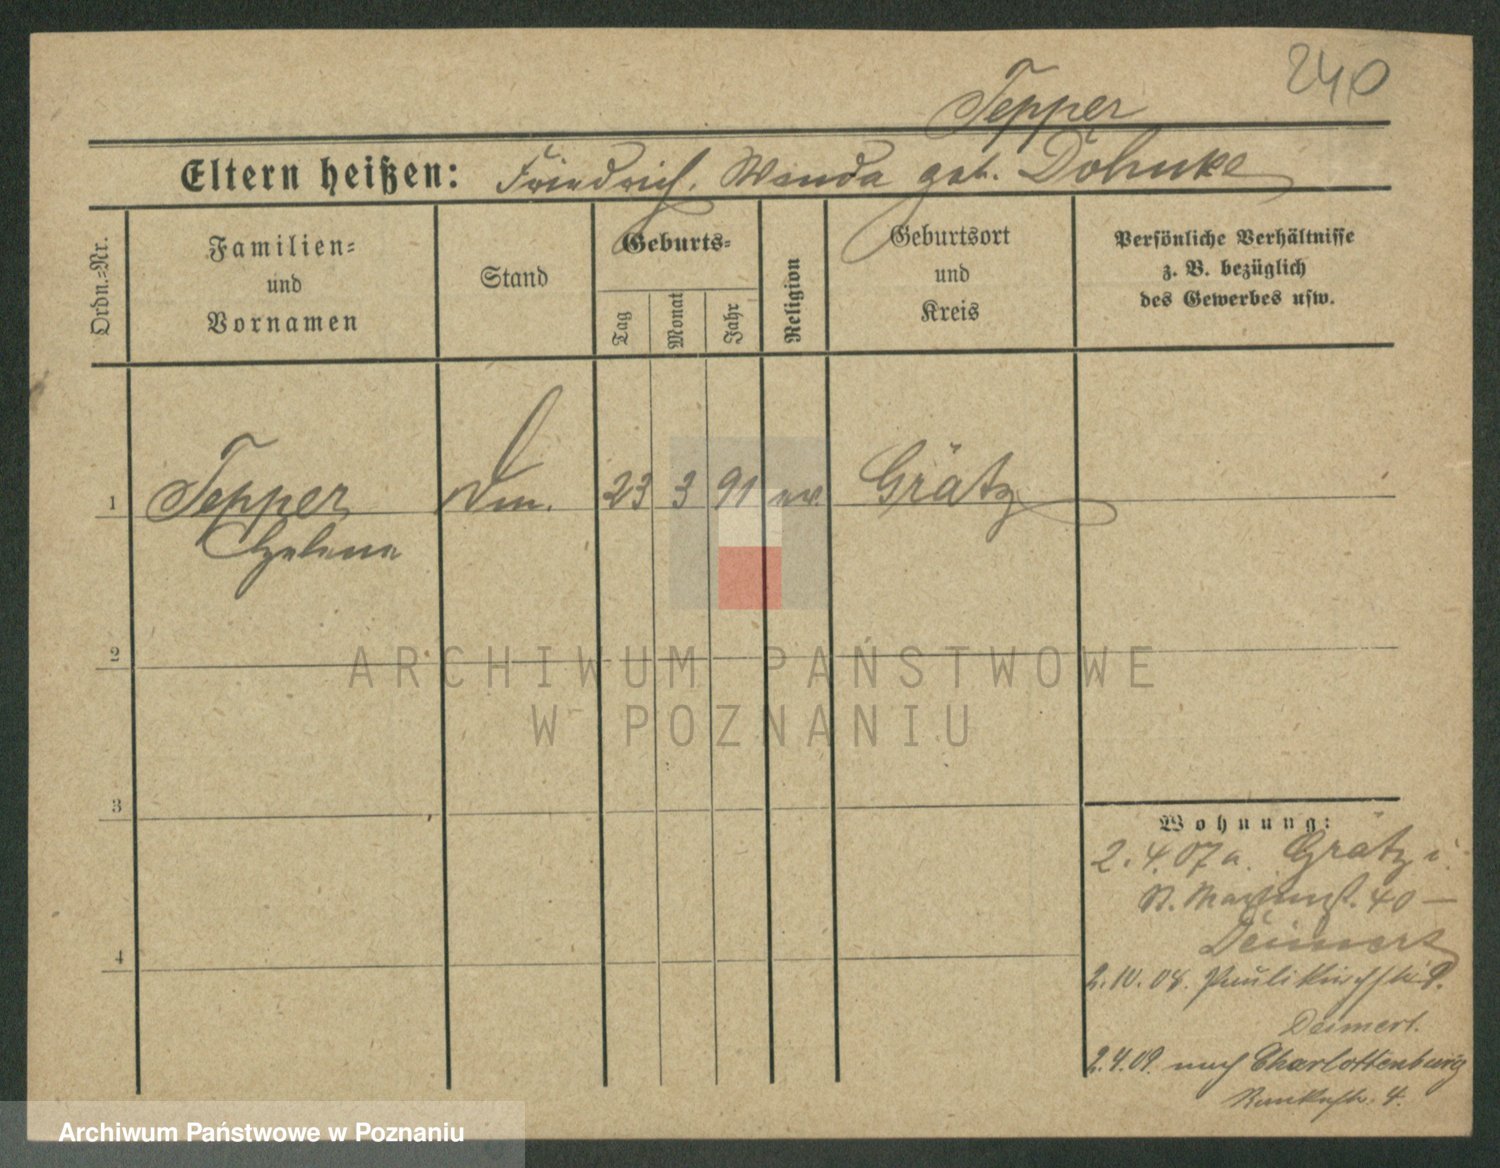 240
Tepper
Eltern heißen: Friedrich, Wanda geb. Dohnke
Ordn.-Nr.
Familien-
und
Vornamen
Stand
Geburts-
Tag
Monat
Jahr
Religion
Geburtsort
und
Kreis
Persönliche Verhältnisse
z. B. bezüglich
des Gewerbes usw.
1 Tepper 23 3 91 ev. Grätz
Helene
2
ARCHIWUM PAŃSTWOWE
W POZNANIU
3
4
Wohnung:
2.4.07 a. Grätz i.
St. Martinstr. 40 –
Deimert
2.10.08. Paulikirchstr. 9.
Deimert.
2.4.09. nach Charlottenburg
4.
Archiwum Państwowe w Poznaniu